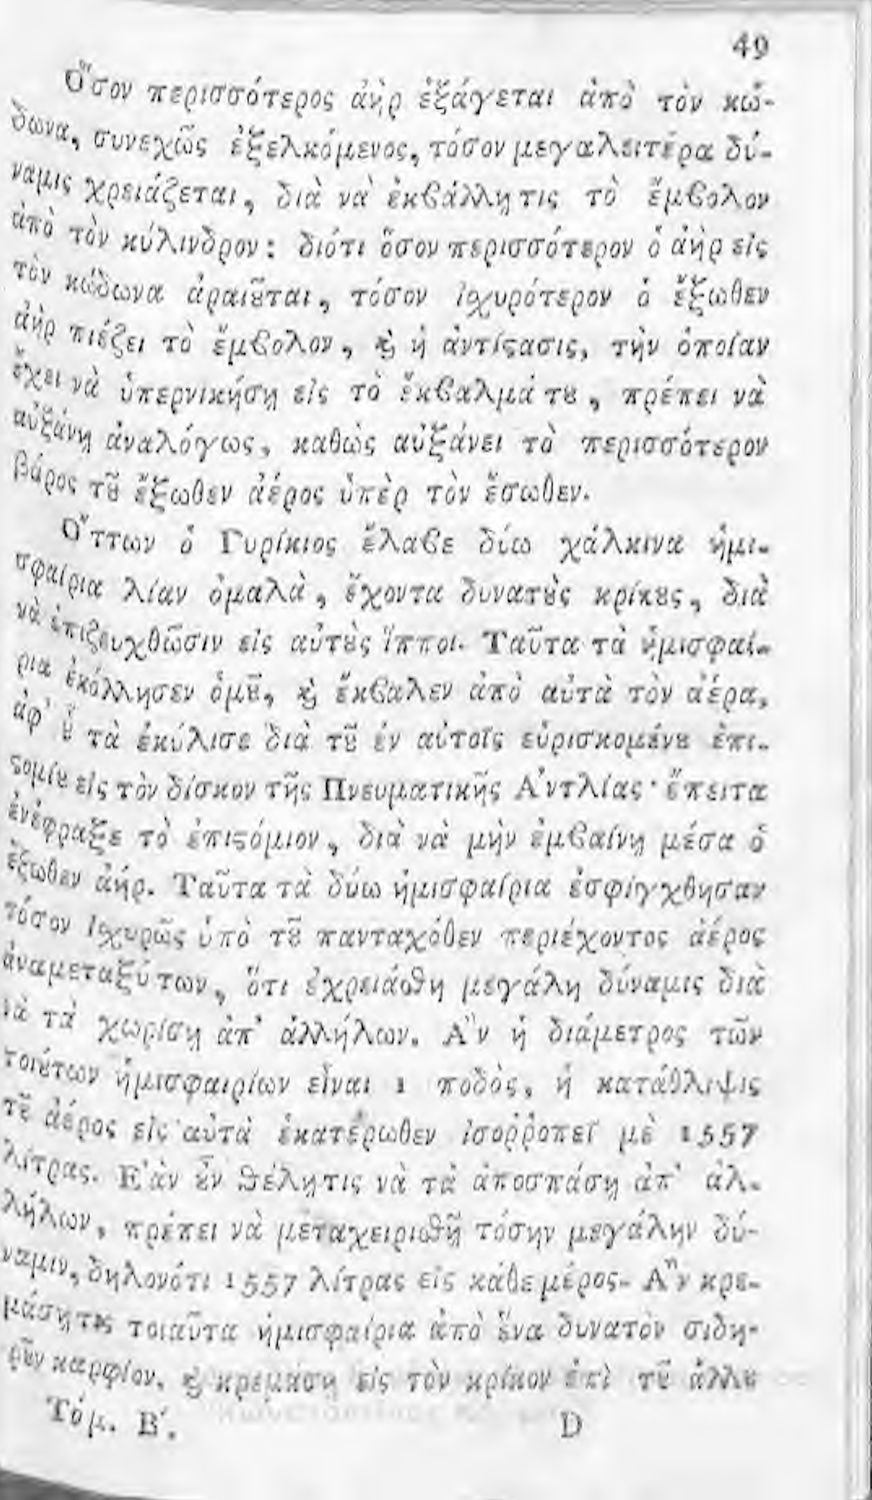 49
Ὅσον περισσότερος ἀὴρ ἐξάγεται ἀπὸ τὸν κώ-
δωνα, συνεχῶς ἐξελκόμενος, τόσον μεγαλειτέρα δύ-
ναμις χρειάζεται, διὰ νὰ ἐκβάλλῃ τις τὸ ἔμβολον
ἀπὸ τὸν κύλινδρον: διότι ὅσον περισσότερον ὁ ἀὴρ εἰς
τὸν κώδωνα ἀραιȣ͂ται, τόσον ἰσχυρότερον ὁ ἔξωθεν
ἀὴρ πιέζει τὸ ἔμβολον, ϗ ἡ ἀντίϛασις, τὴν ὁποίαν
ἔχει νὰ ὑπερνικήσῃ εἰς τὸ ἔκβαλμά τȣ, πρέπει νὰ
αὐξάνῃ ἀναλόγως, καθὼς αὐξάνει τὸ περισσότερον
βάρος τȣ͂ ἔξωθεν ἀέρος ὑπὲρ τὸν ἔσωθεν.
Ὄττων ὁ Γυρίκιος ἔλαβε δύω χάλκινα ἡμι-
σφαίρια λίαν ὁμαλὰ, ἔχοντα δυνατȣ̀ς κρίκȣς, διὰ
νὰ ἐπιζευχθῶσιν εἰς αὐτȣ̀ς ἵπποι. Ταῦτα τὰ ἡμισφαί-
ρια ἐκόλλησεν ὁμȣ͂, ϗ ἔκβαλεν ἀπὸ αὐτὰ τὸν ἀέρα,
ἀφ' ȣ̔͂ τὰ ἐκύλισε διὰ τȣ͂ ἐν αὐτοῖς εὑρισκομένȣ ἐπι-
ϛομίȣ εἰς τὸν δίσκον τῆς Πνευματικῆς Ἀντλίας· ἔπειτα
ἐνέφραξε τὸ ἐπιϛόμιον, διὰ νὰ μὴν ἐμβαίνῃ μέσα ὁ
ἔξωθεν ἀήρ. Ταῦτα τὰ δύω ἡμισφαίρια ἐσφίγχθησαν
τόσον ἰσχυρῶς ὑπὸ τȣ͂ πανταχόθεν περιέχοντος ἀέρος
ἀναμεταξύ των, ὅτι ἐχρειάσθη μεγάλη δύναμις διὰ
νὰ τὰ χωρίσῃ ἀπ' ἀλλήλων. Ἂν ἡ διάμετρος τῶν
τοιȣ́των ἡμισφαιρίων εἶναι 1 ποδὸς, ἡ κατάθλιψις
τȣ͂ ἀέρος εἰς αὐτὰ ἑκατέρωθεν ἰσοῤῥοπεῖ μὲ 1557
λίτρας. Ἐὰν ȣ̓͂ν θέλῃ τις νὰ τὰ ἀποσπάσῃ ἀπ' ἀλ-
λήλων, πρέπει νὰ μεταχειρισθῇ τόσην μεγάλην δύ-
ναμιν, δηλονότι 1557 λίτρας εἰς κάθε μέρος. Ἂν κρε-
μάσῃ τις τοιαῦτα ἡμισφαίρια ἀπὸ ἕνα δυνατὸν σιδη-
ρȣ͂ν καρφίον, ϗ κρεμάσῃ εἰς τὸν κρίκον ἐπὶ τȣ͂ ἄλλȣ
Τόμ. Β´. D